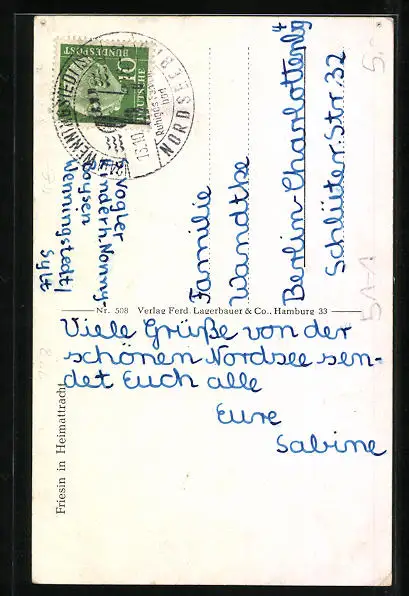 DEUTSCHE
BUNDESPOST
10
NORDSEEB
WENNINGSTEDT
S. Vogler
Kinderh. Nonny
Boysen
Wenningstedt/
Sylt
Familie
Wandtke
Berlin-Charlottenbg
Schlüter-Str. 32
5,-
Nr. 508 Verlag Ferd. Lagerbauer & Co., Hamburg 33
Viele Grüße von der
schönen Nordsee sen-
det Euch alle
Eure
Sabine
Friesin in Heimattracht